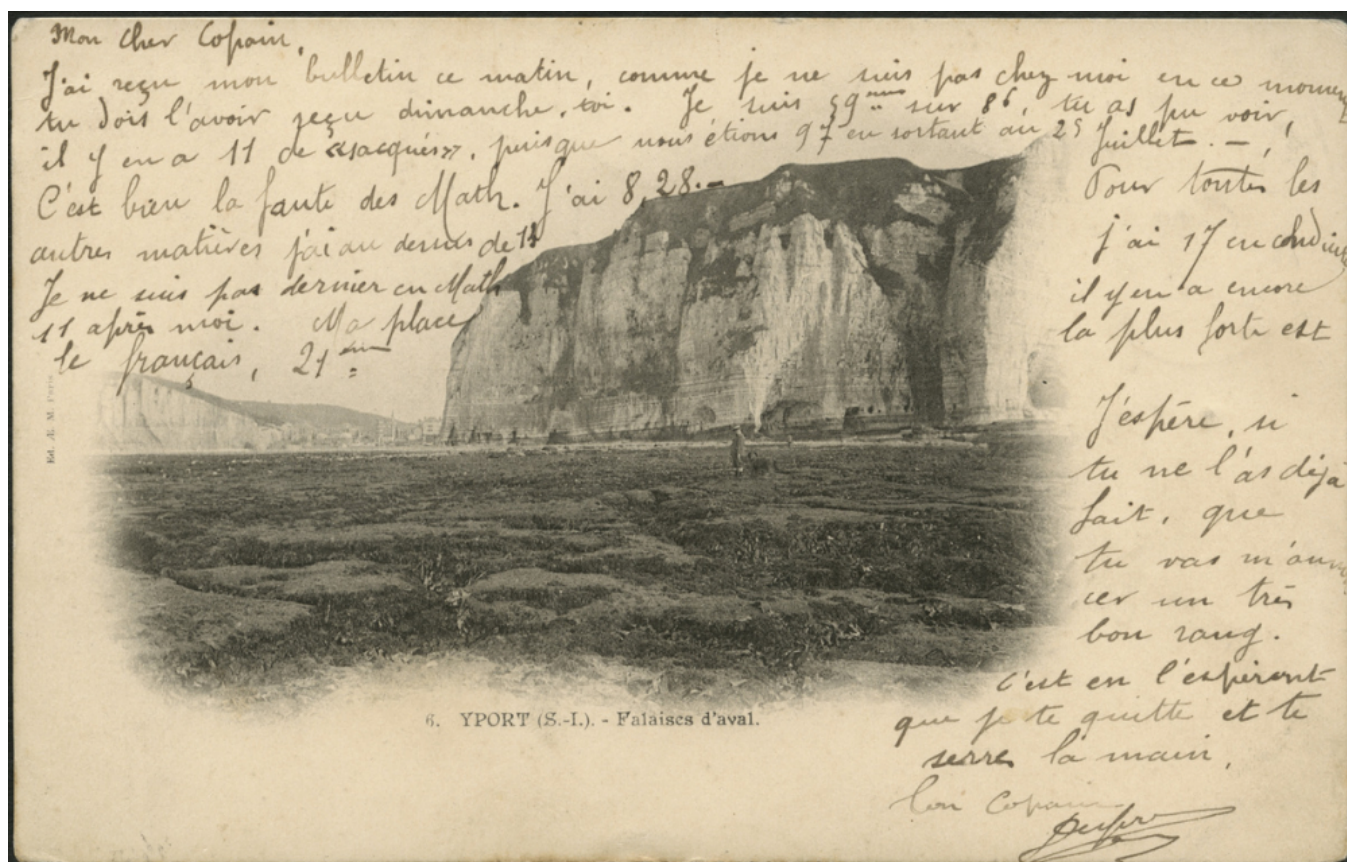 Mon cher Copain,
J'ai reçu mon bulletin ce matin, comme je ne suis pas chez moi en ce moment
tu dois l'avoir reçu dimanche, toi. Je suis 59ème sur 86, tu as pu voir,
il y en a 11 de «sacqués», puisque nous étions 97 en sortant au 25 Juillet. —,
C'est bien la faute des Math. J'ai 8,28. — Pour toutes les
autres matières j'ai au dessus de 13 j'ai 17 en conduite
Je ne suis pas dernier en Math il y en a encore
11 après moi. Ma place la plus forte est
le français, 21ème
J'espère, si
tu ne l'as déjà
fait, que
tu vas m'annon
cer un très
bon rang.
C'est en l'espérant
que je te quitte et te
serre la main,
Ton Copain
Ed. A. M. Paris
6. YPORT (S.-I.). - Falaises d'aval.